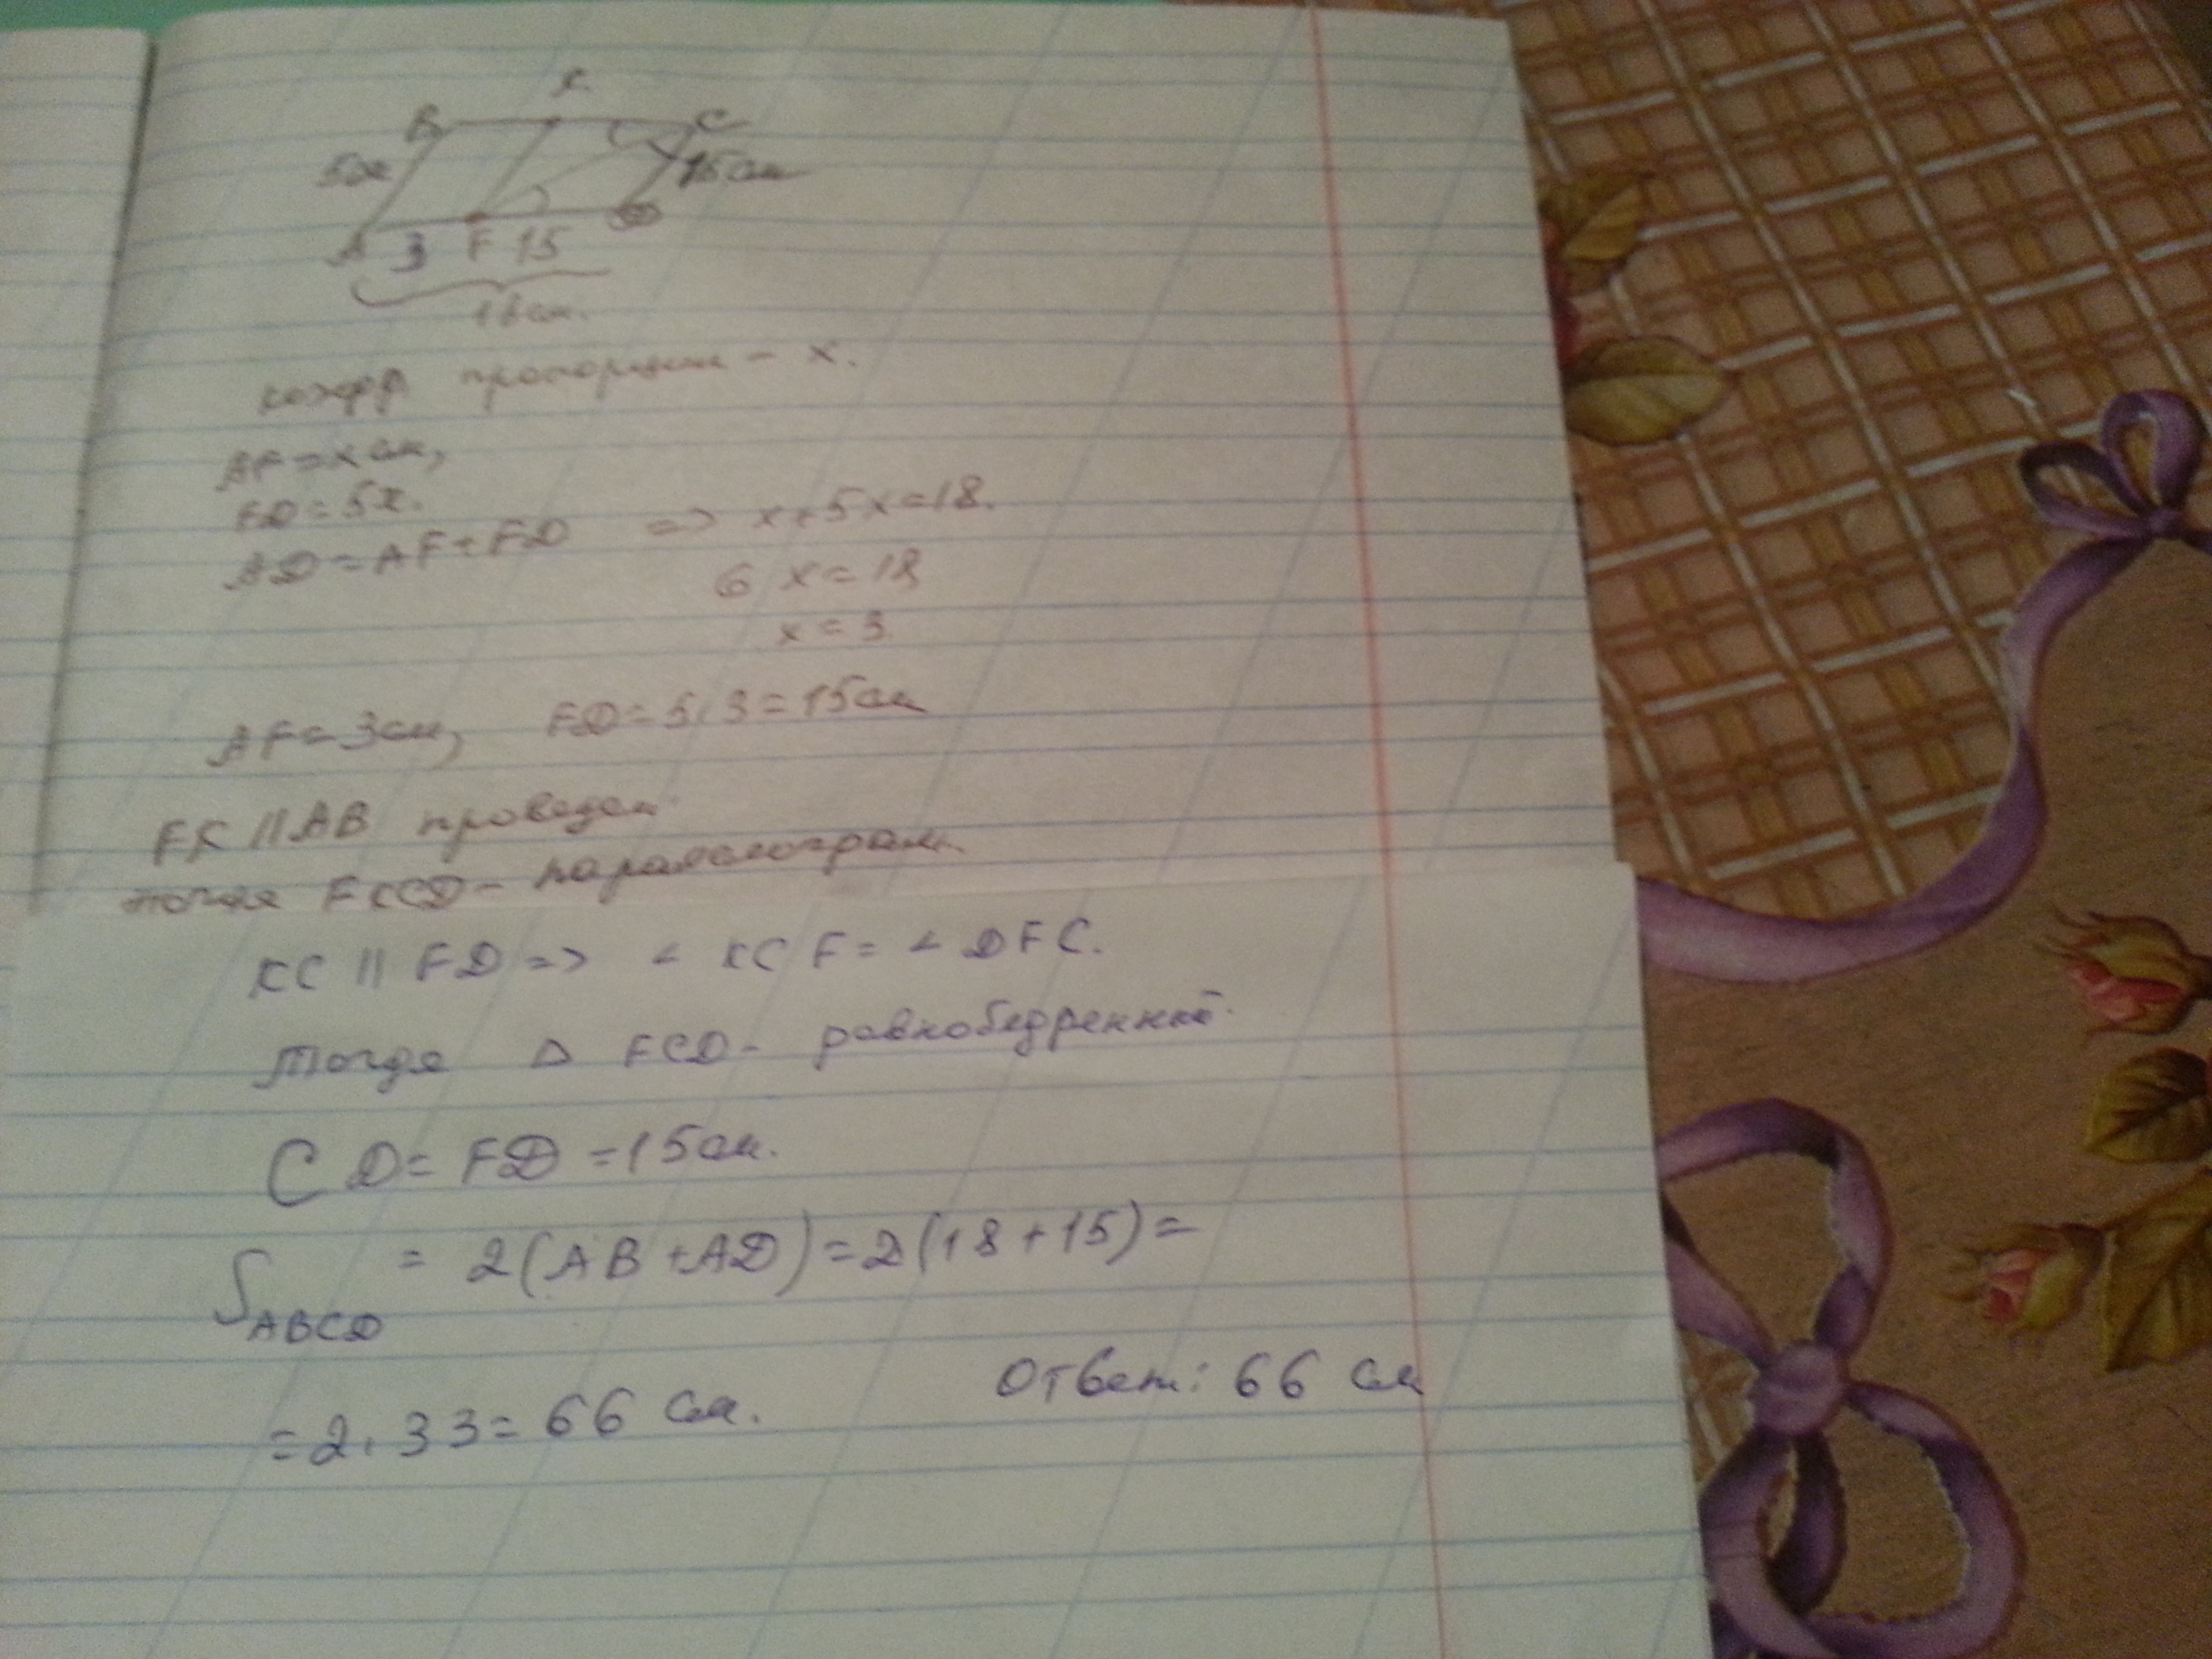 K
B C
5х 15см
A 3 F 15 D
18см.
коэфф пропорции - x.
AF=xсм,
FD=5x.
AD=AF+FD => x+5x=18.
6x=18
x=3
AF=3см, FD=5·3=15см
FK || AB проведем
тогда FKCD- паралелограм.
KC || FD => ∠ KCF= ∠ DFC.
Тогда Δ FCD- равнобедренный.
CD= FD =15см.
S ABCD = 2(AB+AD)=2(18+15)=
=2·33=66 см. Ответ: 66 см